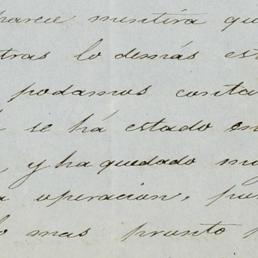 parece mentira que
tras lo demás est
podamos conta
se há estado en
, y ha quedado mu
operación, pue
lo mas pronto p